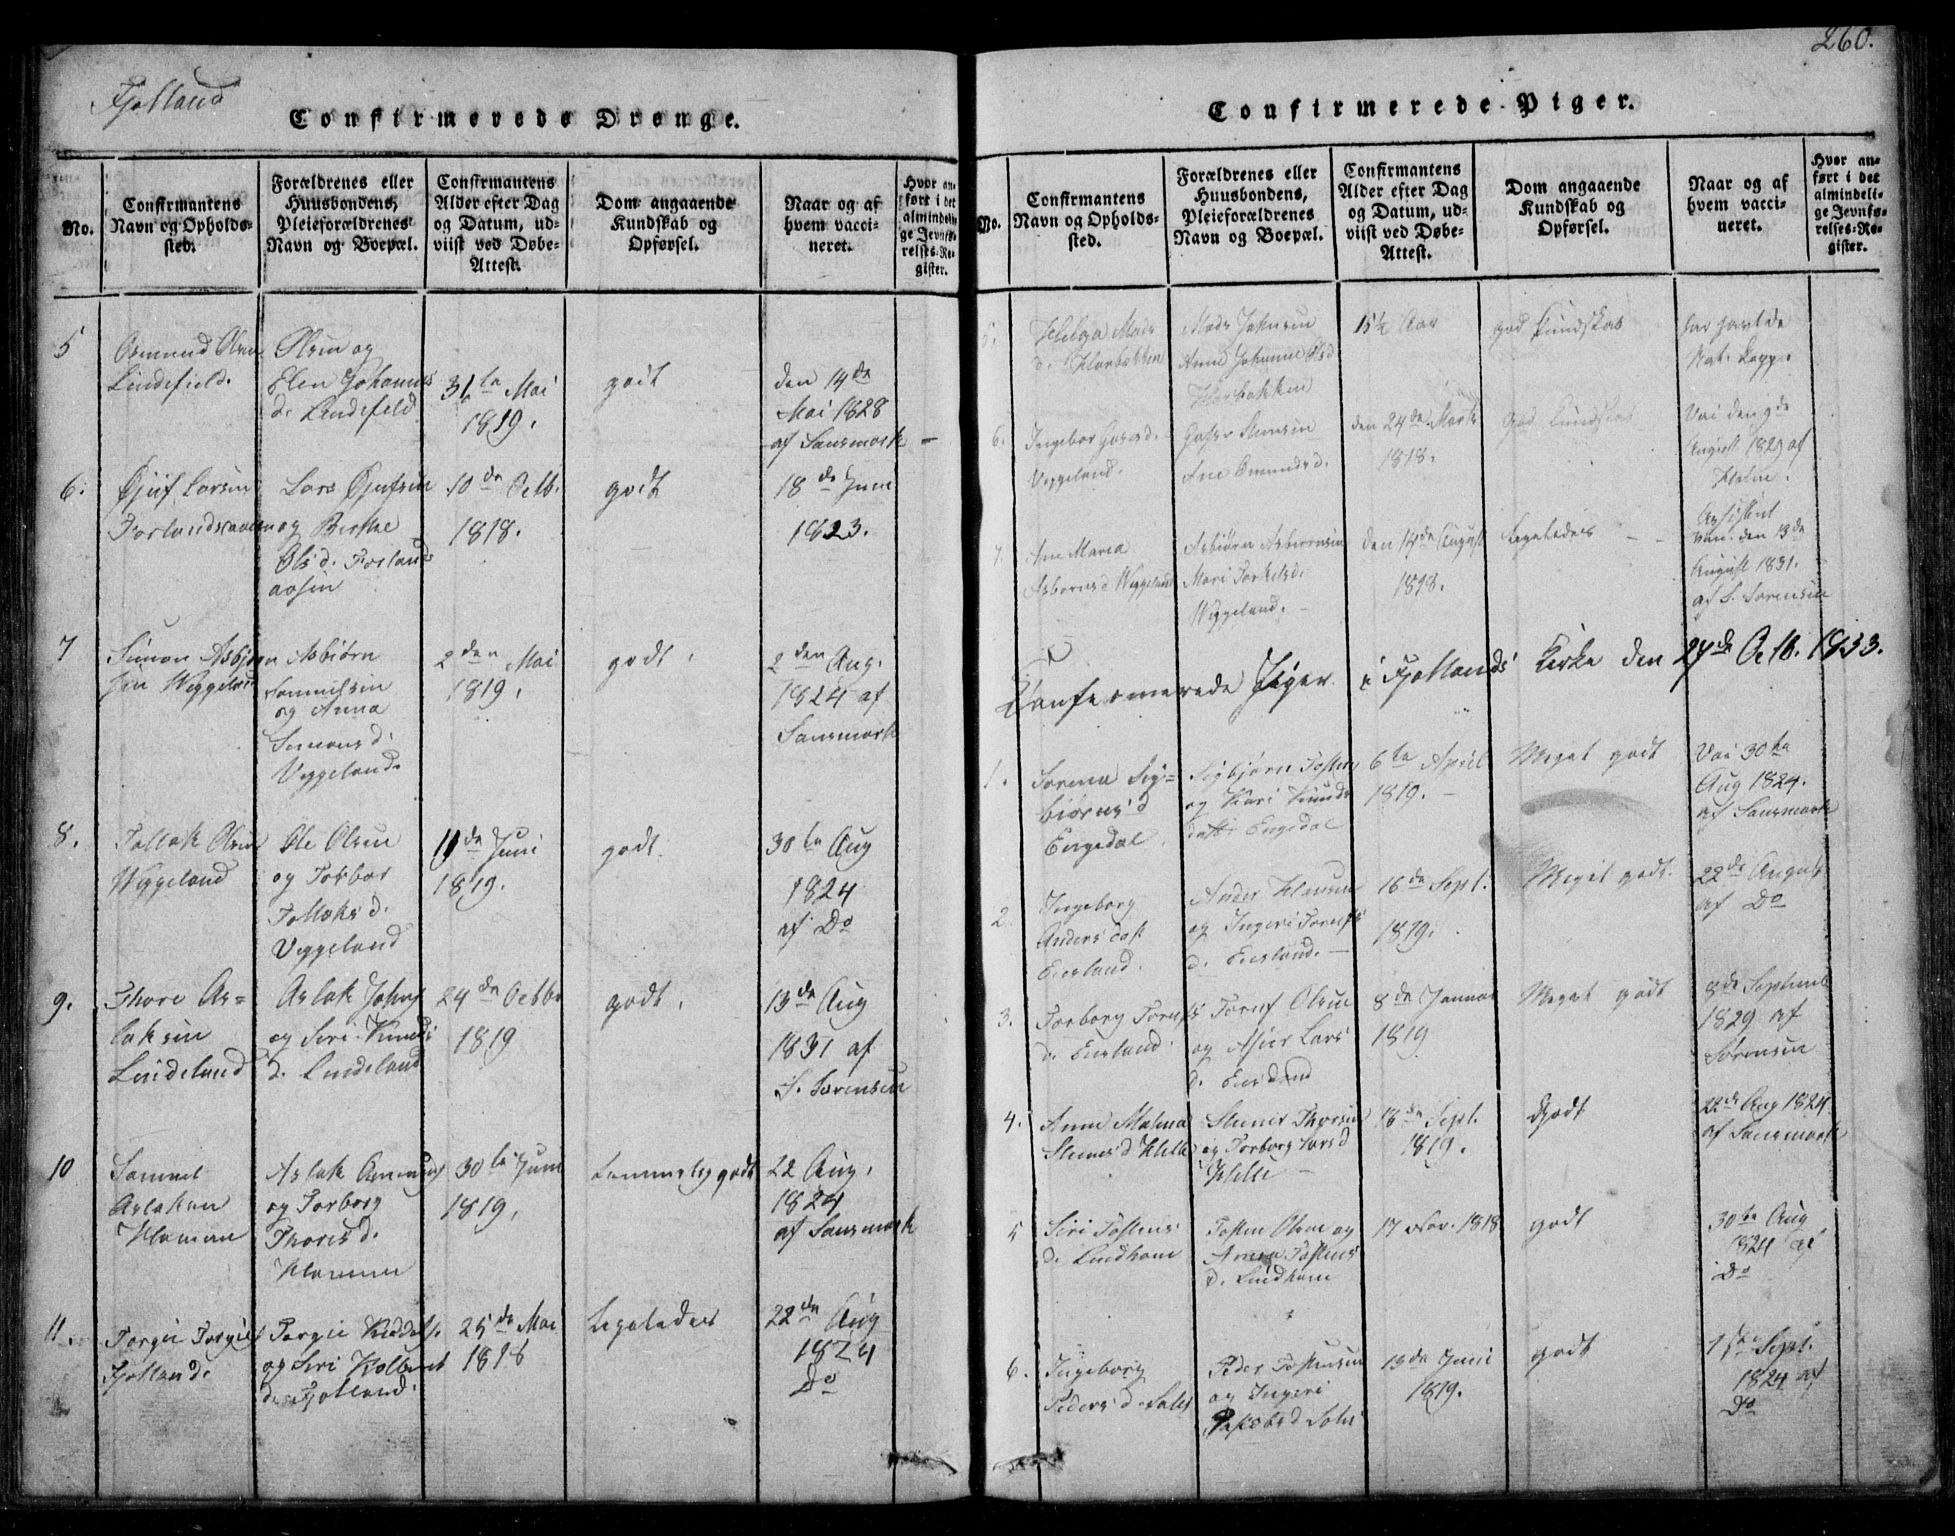 Fjotland
Confirmerede Drenge.
No.
Confirmantens
Navn og Opholds-
sted.
Forældrenes eller
Huusbondens,
Pleieforældrenes
Navn og Boepæl.
Confirmantens
Alder efter Dag
og Datum, ud-
viist ved Døbe-
Attest.
Dom angaaende
Kundskab og
Opførsel.
Naar og af
hvem vacci-
neret.
Hvor an-
ført i det
almindeli-
ge Jevnfø-
relses-Re-
gister.
5
Osmund Olsen
Lindefield.
Olsen og
Elen Johannes
d. Lindefeld
31te Mai
1819.
godt
den 14de
Mai 1828
af Sansmork -
6.
Øjuf Larsen
Lars Øjufsen
og Berthe
Olsd. Forland
aasen
10de Octb.
1818.
godt
18de Juni
1823.
7
Simon Asbjørn
sen Weggeland
Asbiørn
og Anna
Simons d.
Veggeland
2den Mai
1819.
godt.
2den Aug.
1824 af
Sansmork
8.
Tollak Olsen
Weggeland
Ole Olsen
og Torbor
Tollaks d.
Veggeland
11de Juni
1819.
godt.
30te Aug
1824
af Do
9.
Thore As=
laksen
Lindeland
Aslak Johns
og Siri Knuds
d. Lindeland
24de Octbr
1819
godt.
13de Aug
1831 af
S. Sørensen
10
Samuel
Aslaksen
Hammen
Aslak Amunds
og Torborg
Thores d.
Hammen
30te Juni
1819.
temmelig godt
22 Aug.
1824
af Sansmork
11.
Torgie Torgies
Fjotland.
Torgie
og Siri
d. Fjotland.
25de Mai
1818
Ligeledes
22de Aug
1824
Do
260.
Confirmerede Piger.
No.
Confirmantens
Navn og Opholds-
sted.
Forældrenes eller
Huusbondens,
Pleieforældrenes
Navn og Boepæl.
Confirmantens
Alder efter Dag
og Datum, ud-
viist ved Døbe-
Attest.
Dom angaaende
Kundskab og
Opførsel.
Naar og af
hvem vacci-
neret.
Hvor an-
ført i det
almindeli-
ge Jevnfø-
relses-Re-
gister.
5.
Helga Mads
d.
Mads Johnsen
Anne Johanne Olsd
15½ Aar
god Kundskab
har havt de
Nat. Kopper
6.
Ingebor
Veggeland.
Ane Omunds d.
den 24de Marts
1818.
god Kundskab
Vac. den 9de
August 1829 af
Holm.
7.
Ane Maria
Asbørnsd Weggeland
Asbiørn Asbiørnsen
Mari Torkelsd.
Weggeland. -
den 14de August
1818.
Ligeledes - -
Assistent
vac. den 13de
August 1831.
af S. Sørensen
Confirmerede Piger i Fjotlands Kirke den 27de Octb. 1833.
1.
Sørena Sig=
biørns d
Engedal.
Sigbjørn Tostens
og Kari Knuds
datt. Engedal
6te April
1819. -
Meget godt
Vac 30te
Aug 1824.
af Sansmork
2.
Ingeborg
Anders dat.
Eiesland.
Anders Hansen
og Ingeri
d. Eiesland. -
16de Sept.
1819.
Meget godt.
22de August
af Do
3.
Torborg
d. Eiesland.
Olsen
og Asier Lars
d. Eiesland
8de Januar
1819
Meget godt
8de Septemb
1829 af
Sørensen
4.
Anne Malena
Steners d Helle
Stener Thorsen
og Torborg Lars d
Helle -
18de Sept.
1819.
Godt
22de Aug 1824
af Sansmork
5
Siri Tostens
d. Lindhom
Tosten Olsen og
Anna Tostens
d. Lindhom
17 Nov. 1818
godt
30te Aug
1824 af
Do
6.
Ingeborg
Peders d. Soles
Peder Tostensen
og Ingeri
Jakobs d Soles
13de Juni
1819.
godt
1ste Sept.
1824 af
Do